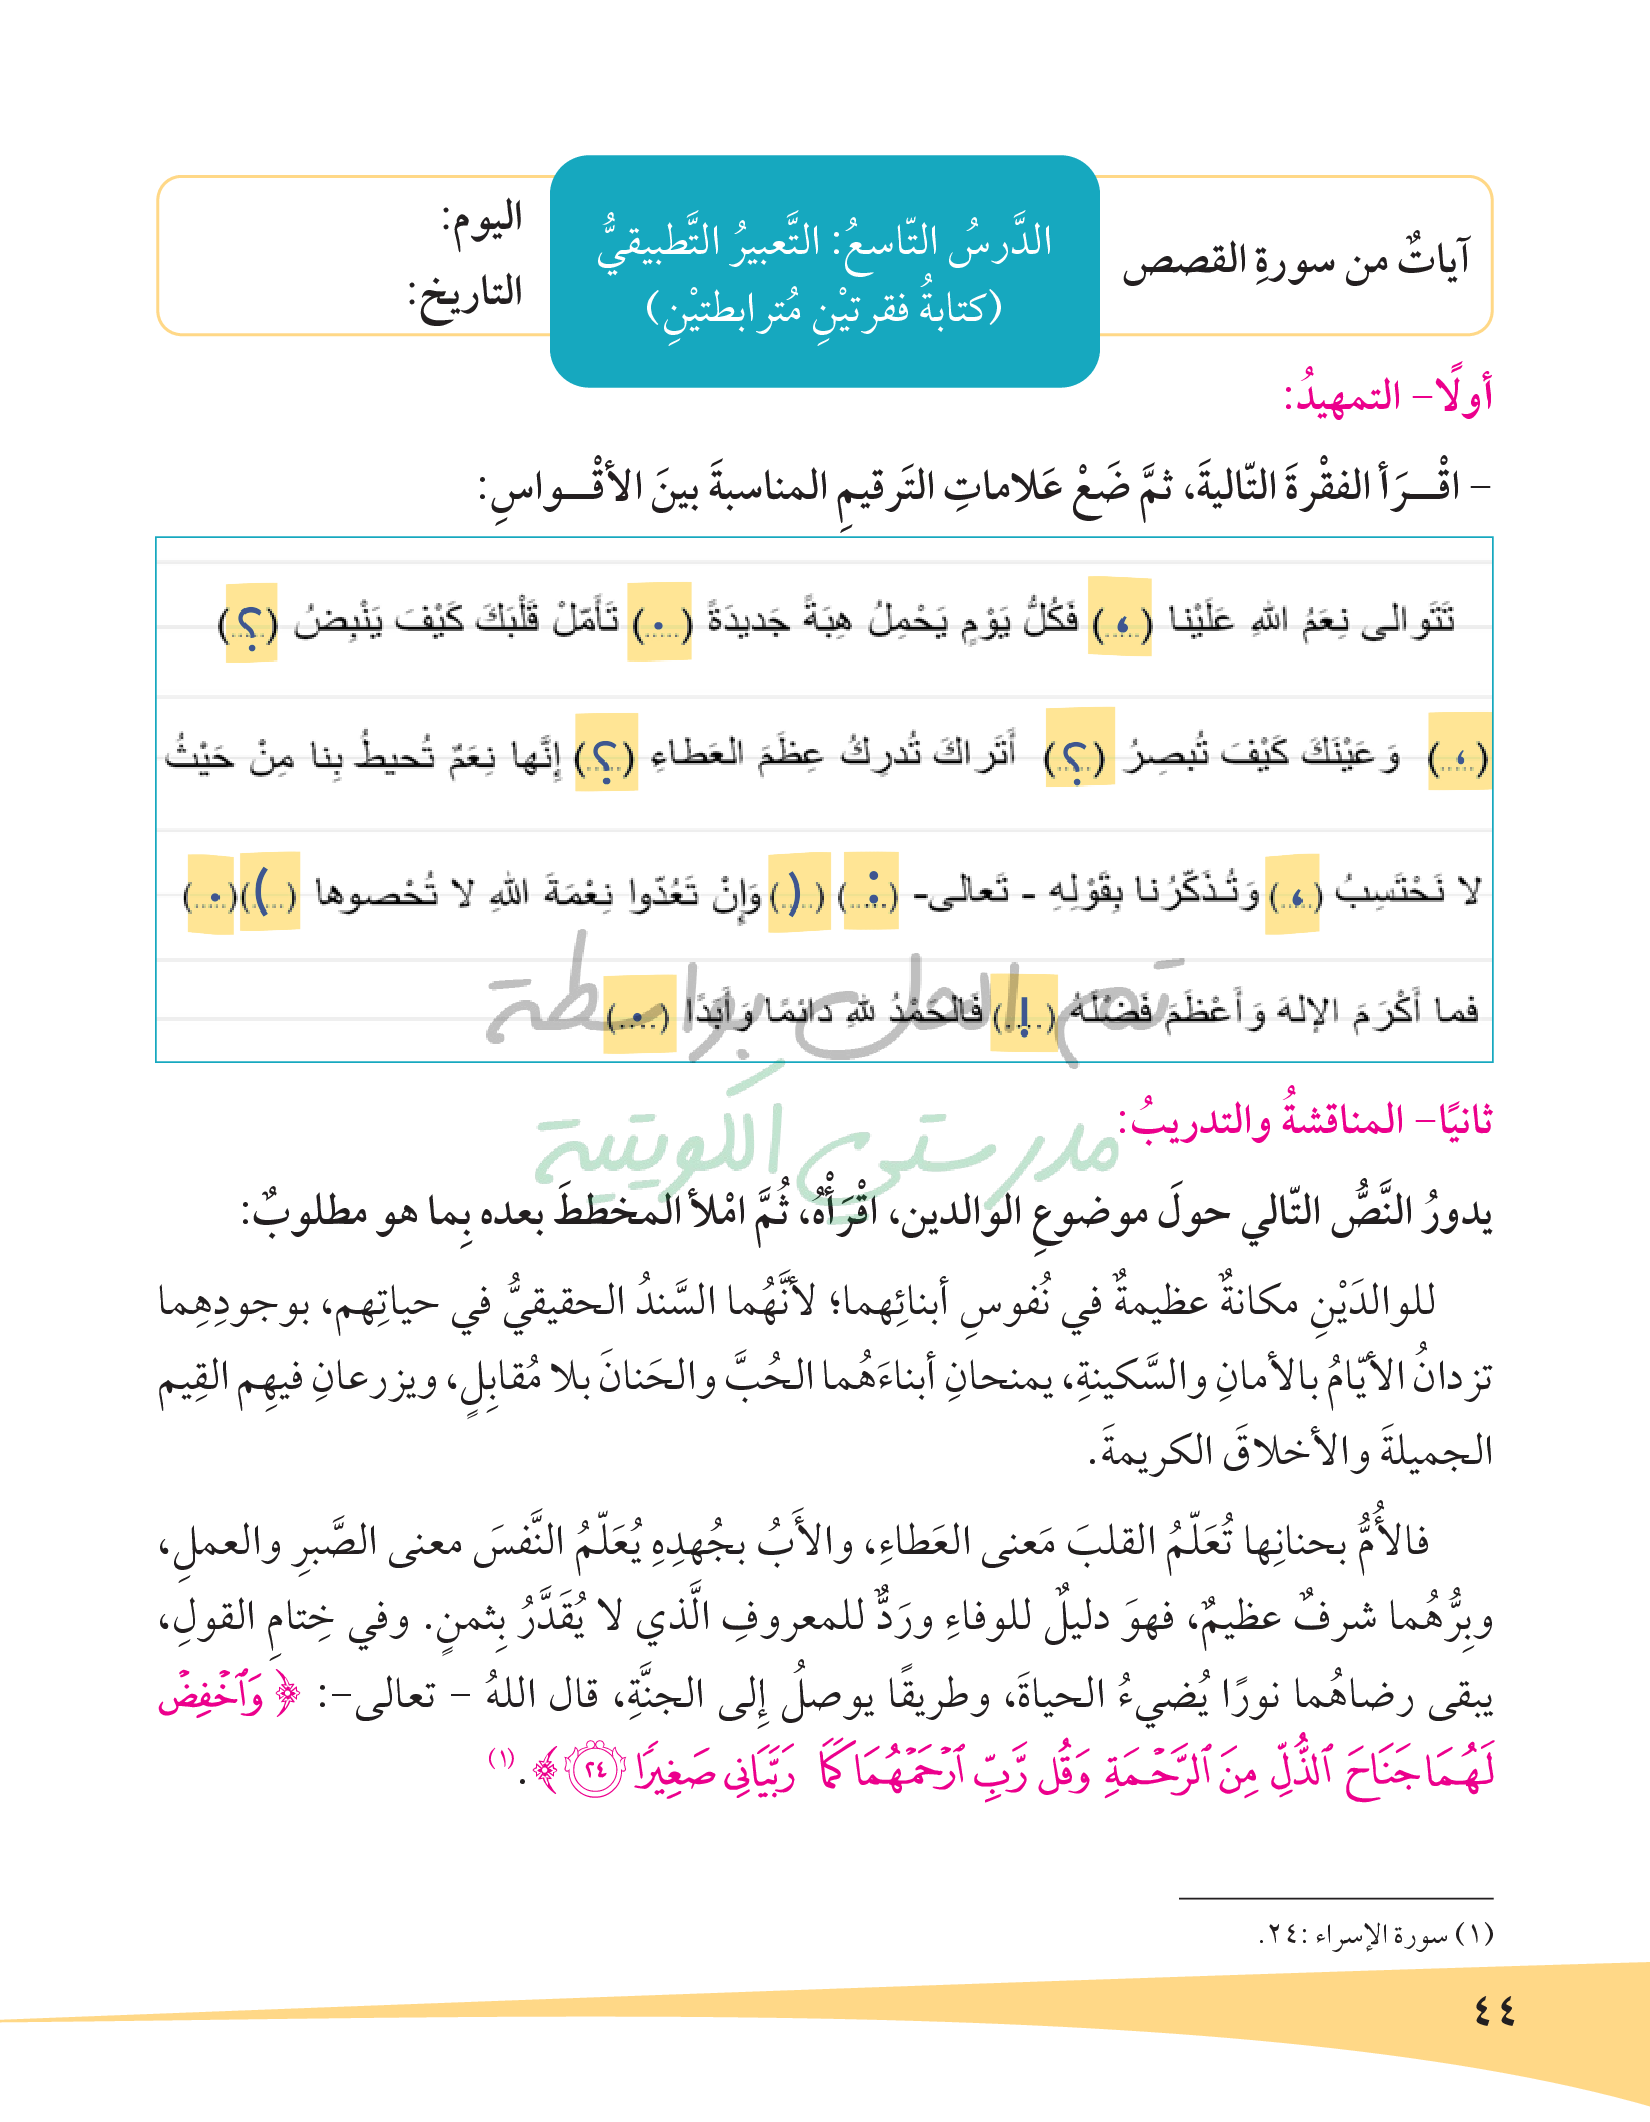 آياتٌ من سورةِ القصص
الدَّرسُ التّاسعُ: التَّعبيرُ التَّطبيقيُّ
(كتابةُ فقرتيْنِ مُترابطتيْنِ)
اليوم:
التاريخ:
أولًا- التمهيدُ:
- اقْـــرَأ الفقْرةَ التّاليةَ، ثمَّ ضَعْ عَلاماتِ التَرقيمِ المناسبةَ بينَ الأقْـــواسِ:
تَتَوالى نِعَمُ اللهِ عَلَيْنا (،) فَكُلُّ يَوْمٍ يَحْمِلُ هِبَةً جَديدَةً (.) تَأَمّلْ قَلْبَكَ كَيْفَ يَنْبِضُ (؟)
(،) وَعَيْنَكَ كَيْفَ تُبصِرُ (؟) أَتَراكَ تُدرِكُ عِظَمَ العَطاءِ (؟) إِنَّها نِعَمٌ تُحيطُ بِنا مِنْ حَيْثُ
لا نَحْتَسِبُ (،) وَتُذَكّرُنا بِقَوْلِهِ - تَعالى- (:) (() وَإِنْ تَعُدّوا نِعْمَةَ اللهِ لا تُحْصوها ())(.)
فما أَكْرَمَ الإلهَ وَأَعْظَمَ فَضْلَهُ (!) فَالحَمْدُ للهِ دائمًا وَأَبَدًا (.)
تم الحل بواسطة
مدرستي الكويتية
ثانيًا- المناقشةُ والتدريبُ:
يدورُ النَّصُّ التّالي حولَ موضوعِ الوالدين، اقْرَأْهُ، ثُمَّ امْلأ المخططَ بعده بِما هو مطلوبٌ:
للوالدَيْنِ مكانةٌ عظيمةٌ في نُفوسِ أبنائِهما؛ لأنَّهُما السَّندُ الحقيقيُّ في حياتِهم، بوجودِهِما
تزدانُ الأيّامُ بالأمانِ والسَّكينةِ، يمنحانِ أبناءَهُما الحُبَّ والحَنانَ بلا مُقابِلٍ، ويزرعانِ فيهِم القِيم
الجميلةَ والأخلاقَ الكريمةَ.
فالأُمُّ بحنانِها تُعَلّمُ القلبَ مَعنى العَطاءِ، والأَبُ بجُهدِهِ يُعَلّمُ النَّفسَ معنى الصَّبرِ والعملِ،
وبِرُّهُما شرفٌ عظيمٌ، فهوَ دليلٌ للوفاءِ ورَدٌّ للمعروفِ الَّذي لا يُقَدَّرُ بِثمنٍ. وفي خِتامِ القولِ،
يبقى رضاهُما نورًا يُضيءُ الحياةَ، وطريقًا يوصلُ إِلى الجنَّةِ، قال اللهُ - تعالى-: ﴿ وَٱخۡفِضۡ
لَهُمَا جَنَاحَ ٱلذُّلِّ مِنَ ٱلرَّحۡمَةِ وَقُل رَّبِّ ٱرۡحَمۡهُمَا كَمَا رَبَّيَانِي صَغِيرٗا ٢٤ ﴾. (١)
(١) سورة الإسراء :٢٤.
٤٤